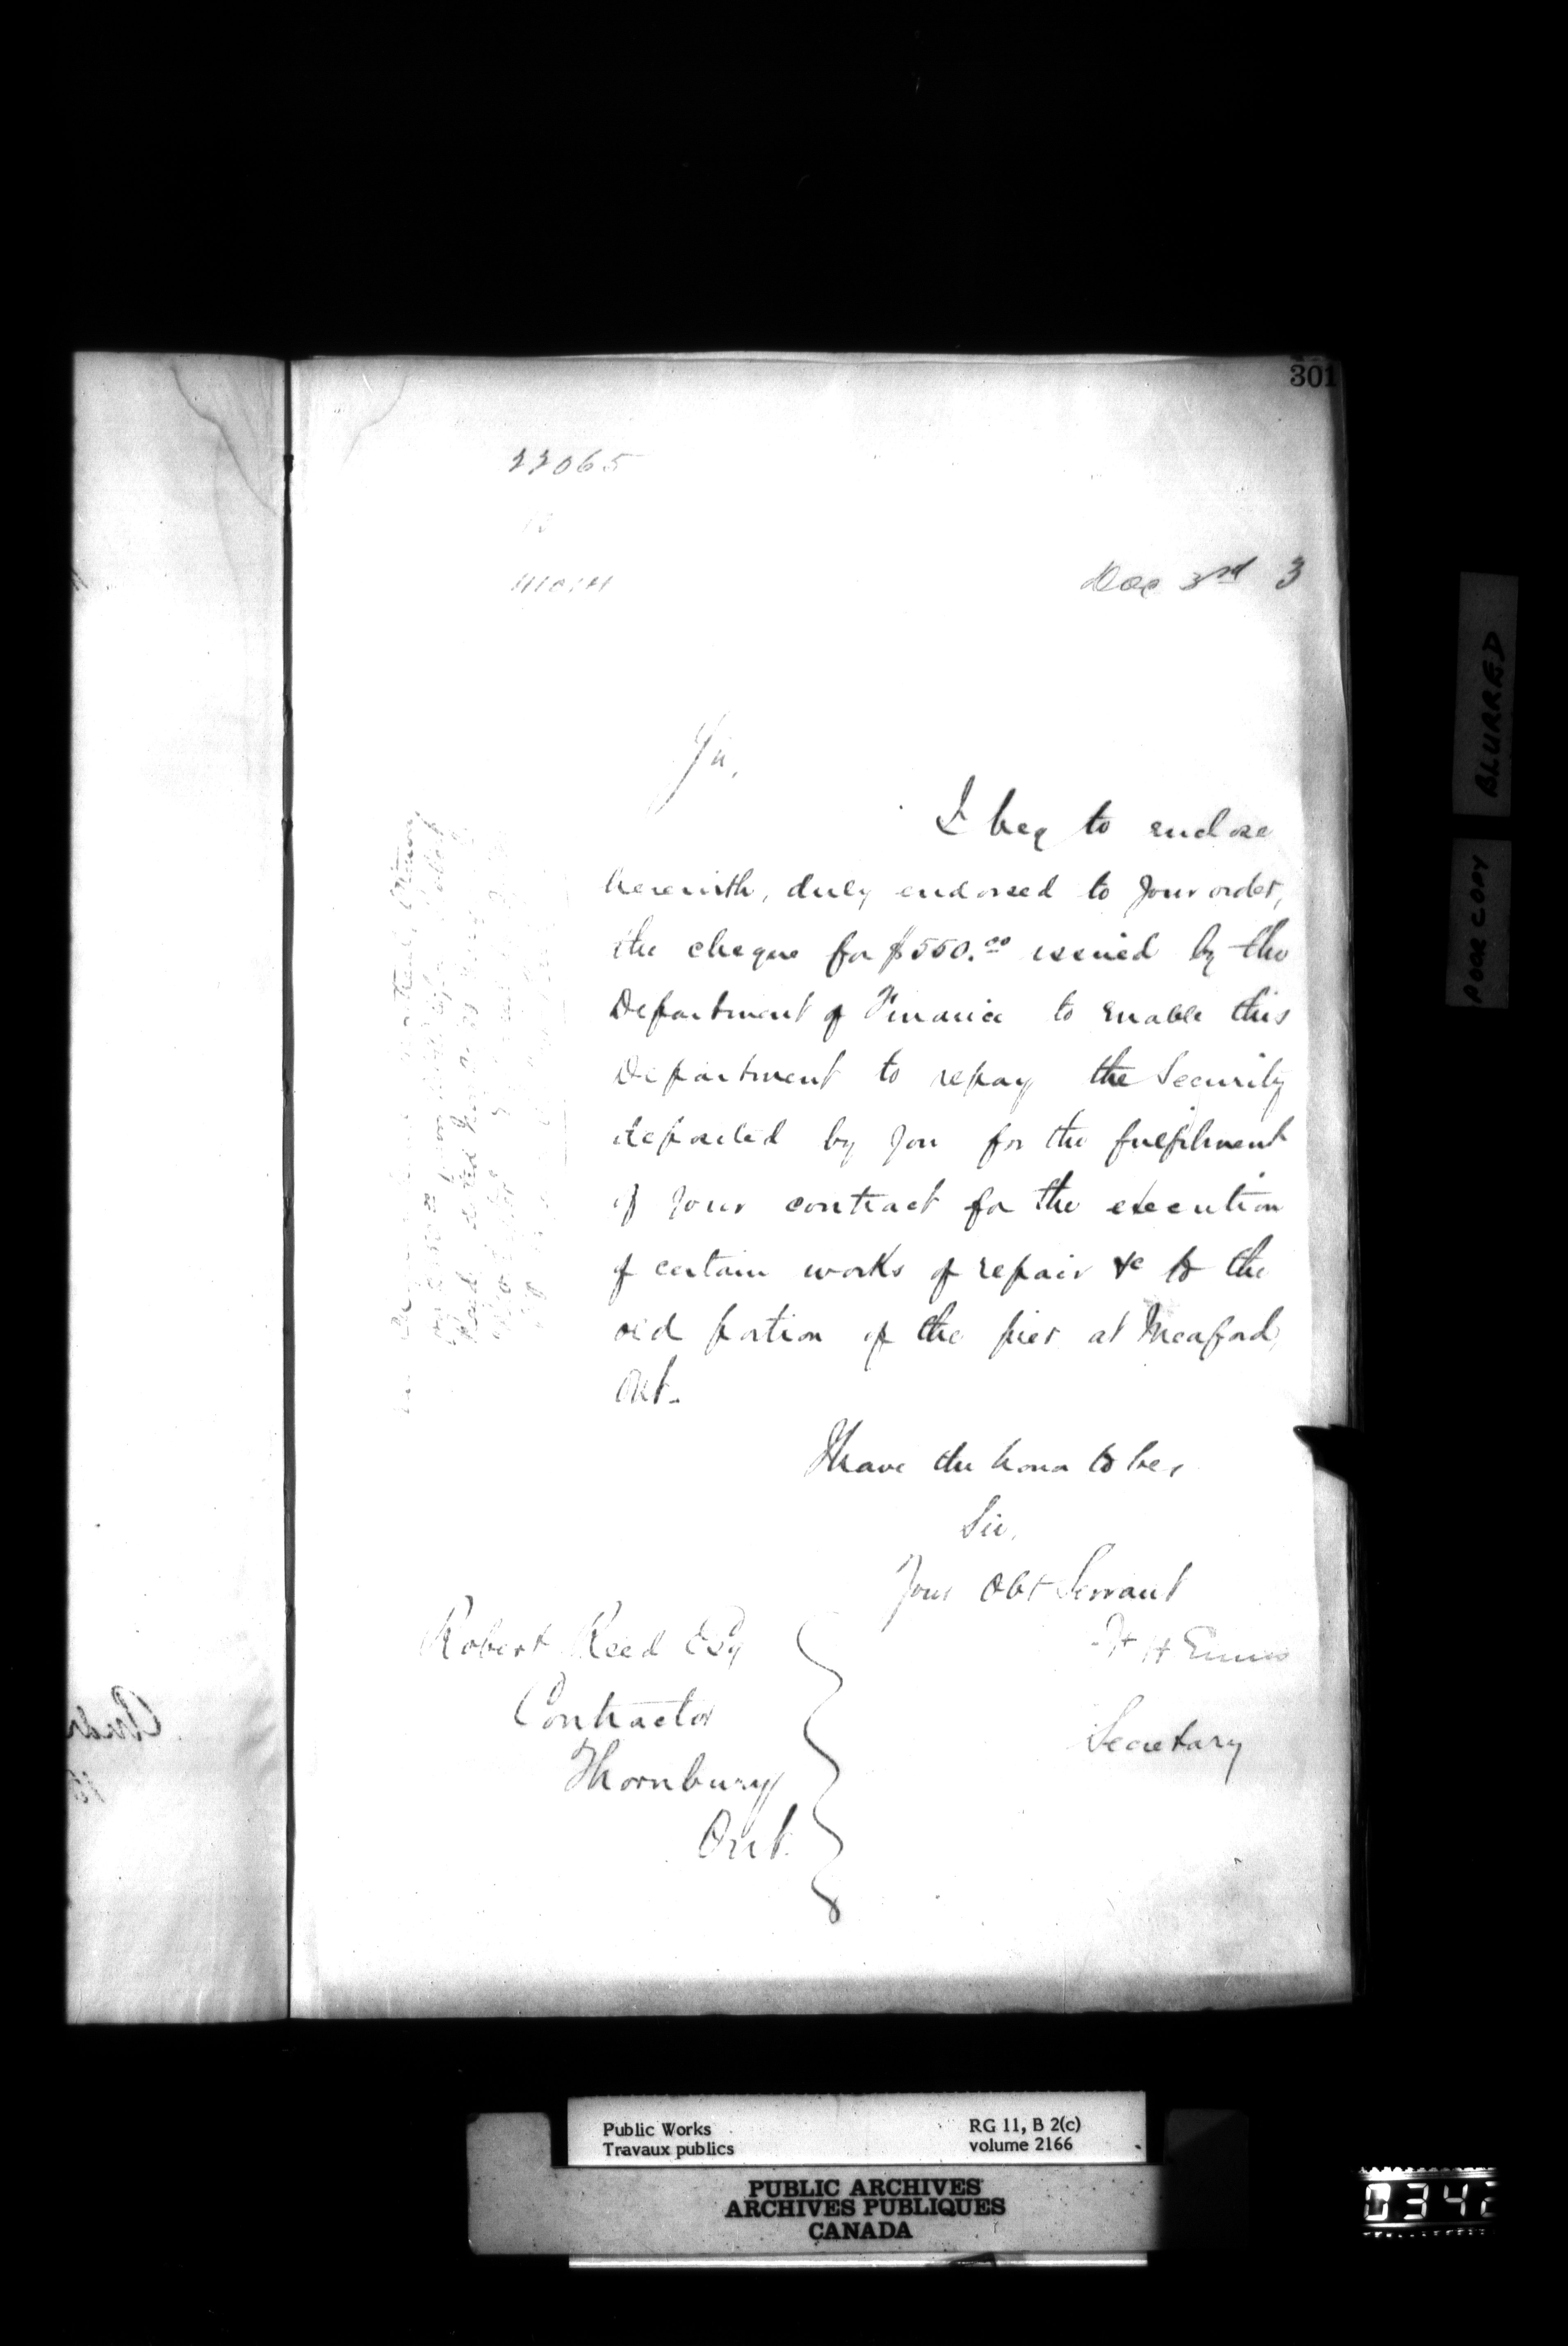 301
22065
Dec 3rd 3
Sir,
I beg to enclose
herewith, duly endorsed to your order,
the cheque for $550.00 issued by the
Department of Finance to enable this
Department to repay the Security
deposited by you for the fulfilment
of your contract for the execution
of certain works of repair &c to the
old portion of the pier at Meaford,
Ont.
I have the honor to be,
Sir,
Your Obt Servant
F H Ennis
Secretary
Robert Reed Esq
Contractor
Thornbury
Ont.
BLURRED
POOR COPY
Public Works
Travaux publics
RG 11, B 2(c)
volume 2166
PUBLIC ARCHIVES
ARCHIVES PUBLIQUES
CANADA
0342